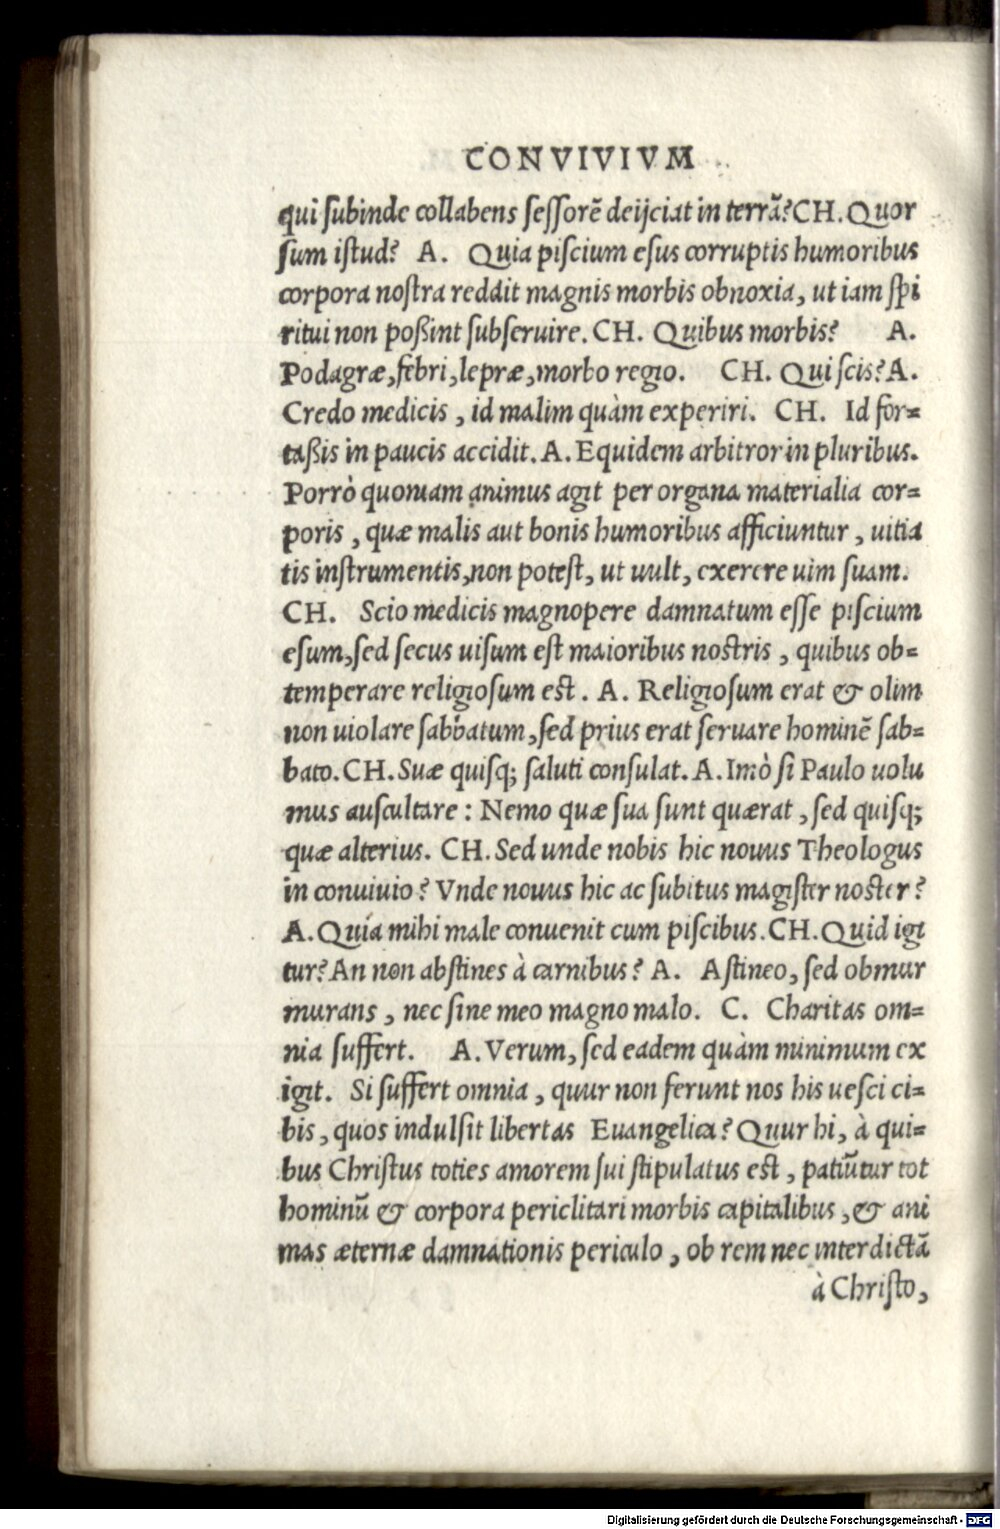 CONVIVIVM
qui ſubinde collabens ſeſſorē deijciat in terrā? CH. Quor
ſum iſtud? A. Quia piſcium eſus corruptis humoribus
corpora noſtra reddit magnis morbis obnoxia, ut iam ſpi
ritui non poßint ſubſeruire. CH. Quibus morbis? A.
Podagræ, febri, lepræ, morbo regio. CH. Qui ſcis? A.
Credo medicis, id malim quàm experiri. CH. Id for=
taßis in paucis accidit. A. Equidem arbitror in pluribus.
Porrò quoniam animus agit per organa materialia cor=
poris, quæ malis aut bonis humoribus afficiuntur, uitia
tis inſtrumentis, non poteſt, ut uult, exerere uim ſuam.
CH. Scio medicis magnopere damnatum eſſe piſcium
eſum, ſed ſecus uiſum eſt maioribus noſtris, quibus ob=
temperare religioſum eſt. A. Religioſum erat & olim
non uiolare ſabbatum, ſed prius erat ſeruare hominē ſab=
bato. CH. Suæ quiſq; ſaluti conſulat. A. Imò ſi Paulo uolu
mus auſcultare: Nemo quæ ſua ſunt quærat, ſed quiſq;
quæ alterius. CH. Sed unde nobis hic nouus Theologus
in conuiuio? Vnde nouus hic ac ſubitus magiſter noſter?
A. Quia mihi male conuenit cum piſcibus. CH. Quid igi
tur? An non abſtines à carnibus? A. Aſtineo, ſed obmur
murans, nec ſine meo magno malo. C. Charitas om=
nia ſuffert. A. Verum, ſed eadem quàm minimum ex
igit. Si ſuffert omnia, quur non ferunt nos his ueſci ci=
bis, quos indulſit libertas Euangelica? Quur hi, à qui=
bus Chriſtus toties amorem ſui ſtipulatus eſt, patiūtur tot
hominū & corpora periclitari morbis capitalibus, & ani
mas æternæ damnationis periculo, ob rem nec interdictā
à Chriſto,
Digitalisierung gefördert durch die Deutsche Forschungsgemeinschaft - DFG